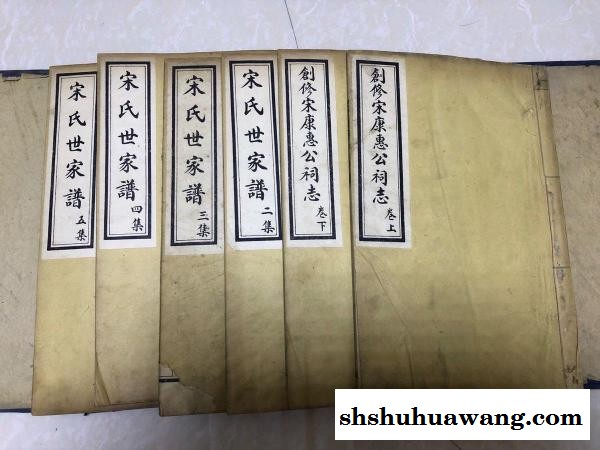 創修宋康惠公祠志 卷上
創修宋康惠公祠志 卷下
宋氏世家譜 二集
宋氏世家譜 三集
宋氏世家譜 四集
宋氏世家譜 五集
shshuhuawang.com